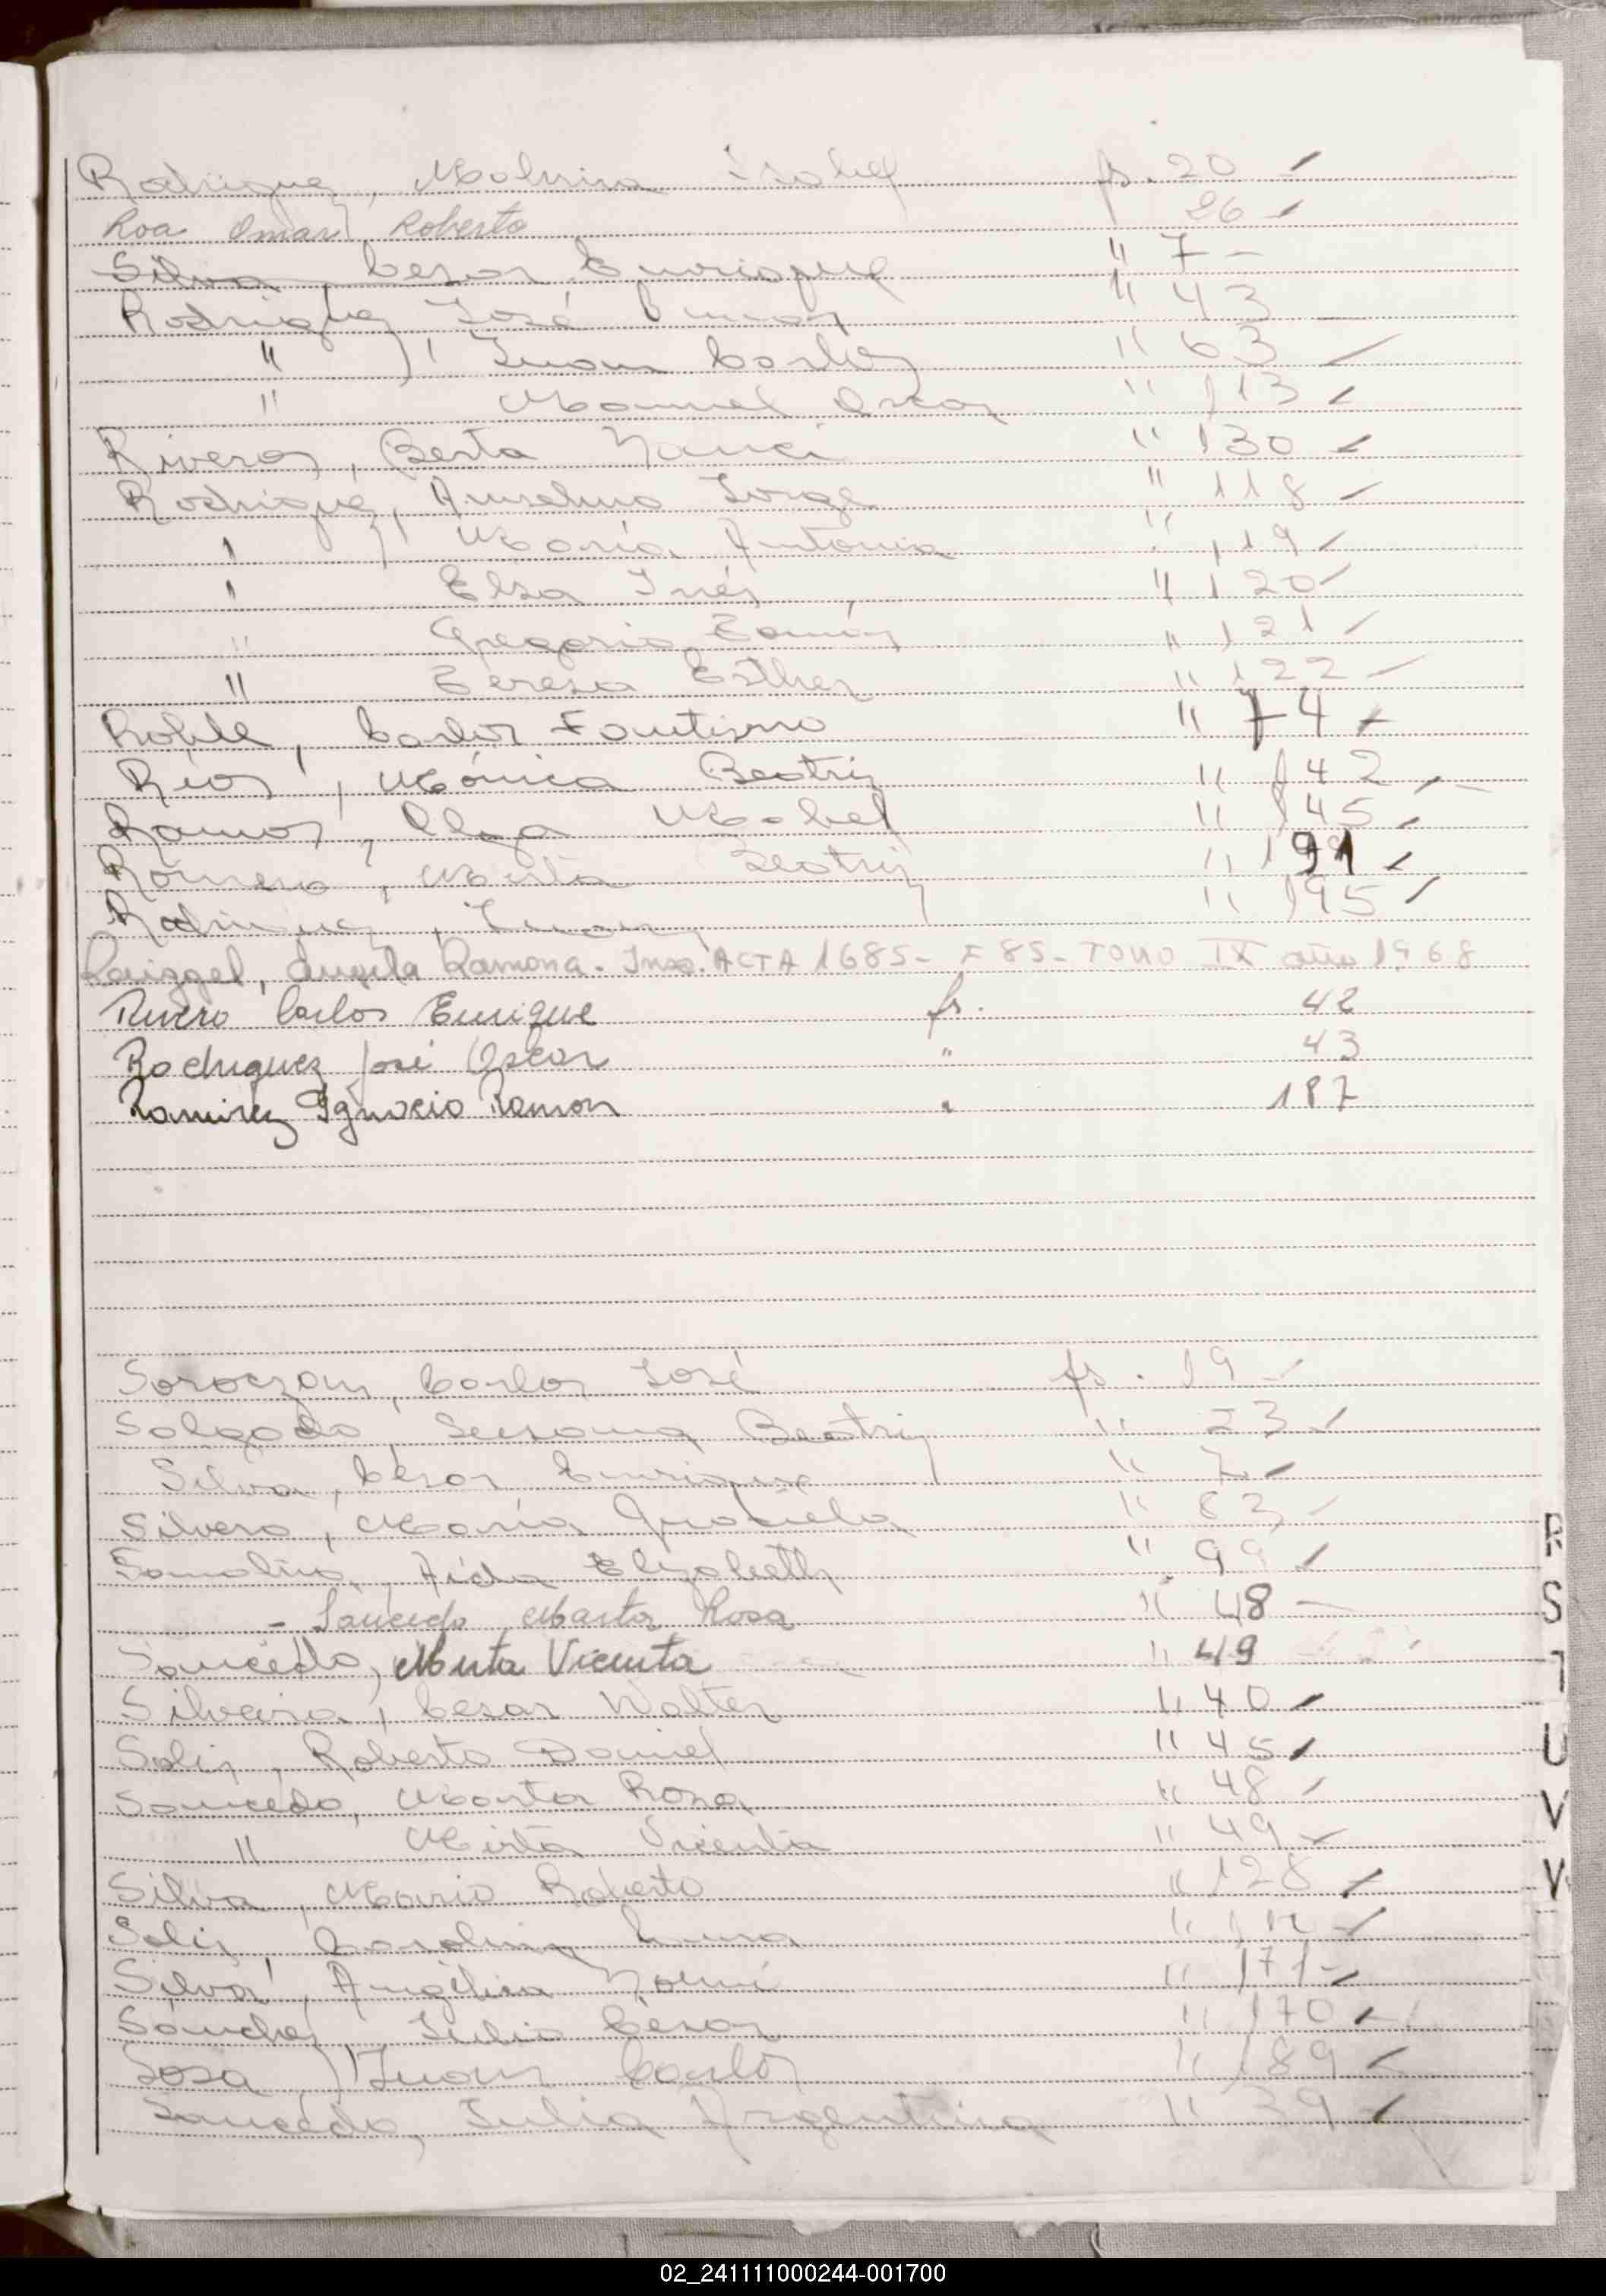 Rodriguez, Malvina Isabel fs. 20
Roa Omar Roberto 26
Silva, Cesar Enrique " 7
Rodriguez José Omar " 43
" , Juan Carlos " 63
" Manuel Oscar " 113
Riveros, Berta Nanci " 130
Rodriguez, Anselmo Jorge " 118
" María Antonia " 119
" Elsa Inés " 120
" Gregorio Ramón " 121
" Teresa Esther " 122
Roble, Carlos Faustino " 74
Ríos, Mónica Beatriz " 142
Ramos, Olga Mabel " 145
Romero, Mirta Beatriz " 191
Rodriguez, Juan " 195
Raizzel, Angela Ramona. Insc. ACTA 1685 - F 85 - TOMO IX año 1968
Rivero Carlos Enrique fs. 42
Rodriguez José Oscar " 43
Ramirez Ignacio Ramon " 187
Carlos José fs. 19
Salgado, Susana Beatriz " 23
Silva, César Enrique " 7
Silvero, María Graciela " 83
Aída Elizabeth " 99
- Saucedo Marta Rosa " 48
Saucedo, Mirta Vicenta " 49
Silveira, Cesar Walter " 40
Solis, Roberto Daniel " 45
Saucedo, Marta Rosa " 48
" Mirta Vicenta " 49
Silva, Mario Roberto " 128
Solis, Carolina "
Silva, Angélica Noemí " 171
Sanchez, Julio César " 170
Sosa, Juan Carlos " 189
Saucedo, Julia Argentina " 39
R
S
T
U
V
W
02_241111000244-001700